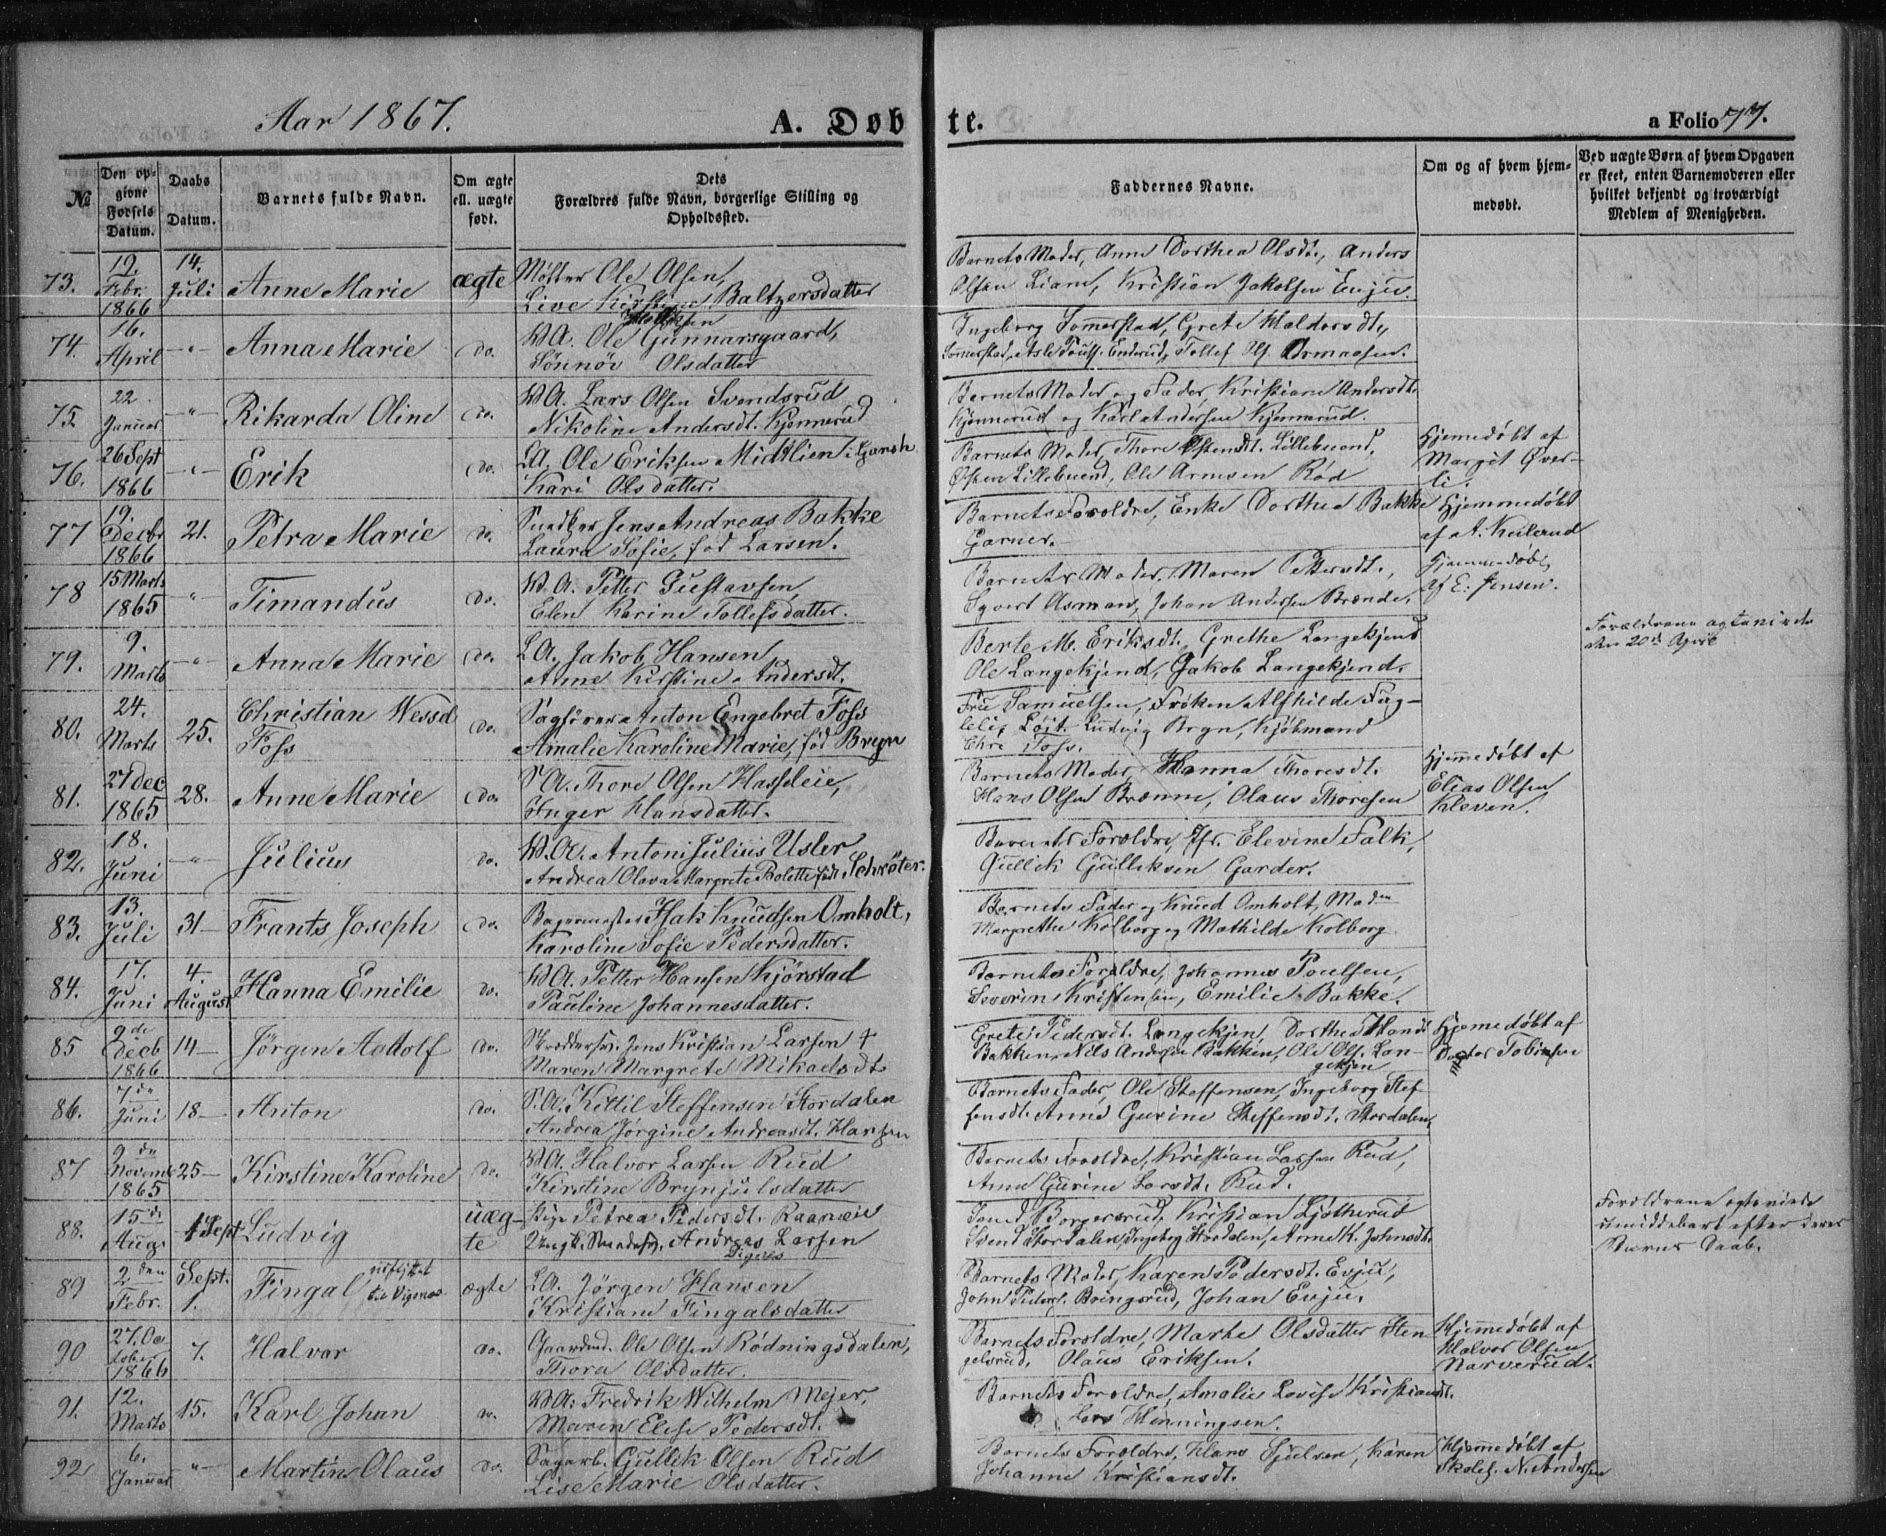 Aar 1867.
A. Døbte.
a Folio 77.
№
Den opgivne Fødsels Datum.
Daabs Datum.
Barnets fulde Navn.
Om ægte ell. uægte født.
Dets
Forældres fulde Navn, borgerlige Stilling og
Opholdssted.
Faddernes Navne.
Om og af hvem hjemmedøbt.
Ved uægte Børn af hvem Opgaven
er skeet, enten Barnemoderen eller
hvilket bekjendt og troværdigt
Medlem af Menigheden.
73. 19. Febr 1866 14. Juli Anne Marie ægte Møller Ole Olsen,
Live Kirstine Baltzersdatter
Barnets Moder, Anne Dorthea Olsdt., Anders
Olsen Liane, Kristian Jakobsen Evju.
74. 16. April " Anna Marie do. WA. Ole Gunnarsgaard,
Sønnøv Olsdatter
Ingeborg Sommerstad, Grete Haldorsdt.,
Sommerstad, Asle Enderud, Tollef Ols.
75 22 Januar " Rikarda Oline do. WA. Lars Olsen Svendsrud
Nikoline Andersdt. Kjennerud
Barnets Moder og Fader, Kristiane Andersdt.
Kjennerud og Karl Andersen Kjennerud.
76. 26 Sept 1866 " Erik do. LA. Ole Eriksen Midtlien i
Kari Olsdatter.
Barnets Moder, Thore Lillebuend,
Østen Lillebuend, Ole Arnesen Rød
Hjemmedøbt af
Margit Øverli.
77 19. Decbr 1866 21. Petra Marie do. Snedker Jens Andreas Bakke
Laura Sofie, fød Larsen.
Barnets Forældre, Enke Dorthea Bakke
Garner.
Hjemmedøbt
af A. Keilerud
78 15 Marts 1865 " Timandus do. WA. Petter Gustavsen,
Elen Karine Tollefsdatter.
Barnets Moder, Maren Pettersdt.,
Syvert Asman, Johan Andersen Brænde,
Hjemmedøbt
af E. Jensen.
79. 9. Marts " Anna Marie do. LA. Jakob Hansen
Anne Kirstine Andersdt.
Berte M. Eriksdt., Grethe Langekjend
Ole Langekjend, Jakob Langekjend.
Forældrene
den 20de April
80. 24. Marts 25. Christian Wessel
Foss do. Sagfører Anton Engebret Foss
Amalie Karoline Marie, fød Bryn
Fru Samuelsen, Frøken Alfhilde Fuglelie
Løit. Ludvig Bryn, Kjøbmand
Chr. Foss.
81. 27 Dec 1865 28. Anne Marie do. SA. Thore Olsen Hasseleie,
Inger Hansdatter.
Barnets Moder, Hanna Thoresdt.
Hans Olsen Brenne, Olaus Thoresen
Hjemmedøbt af
Elias Olsen
Kleven.
82. 18. Juni " Julius do. WA. Anton Julius Usler
Andrea Olava Margrete Bolette født Schrøter.
Barnets Forældre, Jfr. Elevine Falk,
Gullik Gulliksen Garder.
83. 13. Juli 31 Frants Joseph do. Bagermester Isak Knudsen Omholt,
Karoline Sofie Pedersdatter.
Barnets Fader og Knud Omholt,
Margrethe Kolborg og Mathilde Kolborg
84. 17. Juni 4. August Hanna Emilie do. WA. Petter Hansen Kjørstad
Pauline Johannesdatter.
Barnets Forældre, Johannes Poulsen,
Severin Kristensen, Emilie Bakke.
85 9de Decb 1866 14 Jørgen Aadolf do. Jens Kristian Larsen
Maren Margrete Mikaelsdt
Grete Pedersdt. Langekjen, Dorthea
Bakken, Nils Andersen Bakken, Ole Ols. Langekjen
Hjemmedøbt af
Doctor Tobiesen
86. 7de Juni 18 Anton do. SA. Kittil Steffensen Stordalen
Andrea Jørgine Andreasdt. Hansen
Barnets Fader, Ole Steffensen, Ingeborg Steffensdt.
Anne Gurine Steffensdt. Stordalen
87 9de Novemb 1865 25 Kirstine Karoline do. WA. Halvor Larsen Rud
Kirstine Brynjulsdatter
Barnets Forældre, Kristian Larsen Rud,
Anne Gurine Larsdt. Rud.
88. 15de Aug. 1 Sept Ludvig uægte Pige Petrea Pedersdt. Raaneie
Ungk. Andreas Larsen
Digeres
Borgersrud, Kristian
Svend Stordalen, Ingeborg Stordalen, Anne K. Johnsdt.
Forældrene
umiddelbart efter deres
Barns Daab.
89 2den Febr. Sept. 1. Fingal
udflyttet
til Vigsnes
ægte LA. Jørgen Hansen
Kristiane Fingalsdatter
Barnets Moder, Karen Pedersdt. Evju,
John Peders. Bringsrud, Johan Evju.
90 27. October 1866 7. Halvor do. Gaardmd. Ole Olsen Rødningsdalen,
Thora Olsdatter.
Barnets Forældre, Marte Olsdatter Stengelsrud,
Olaus Eriksen.
Hjemmedøbt af
Halvor Olsen
Narverud.
91. 12. Marts 15. Karl Johan do. WA. Fredrik Wilhelm Mejer,
Maren Elise Pedersdt.
Barnets Forældre, Amalie Lovise Kristiansdt.
Lars Henningsen.
92 6. Januar " Martin Olaus do. Sagarb. Gullik Olsen Rud
Lise Marie Olsdatter.
Barnets Forældre, Hans Gjulsen, Karen
Johanne Kristiansdt.
Hjemmedøbt af
Skolel. N. Andersen